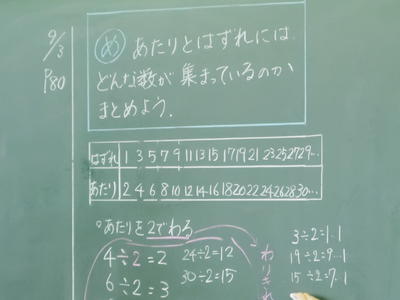 9/3
P80
め あたりとはずれには
どんな数が集まっているのか
まとめよう.
はずれ 1 3 5 7 9 11 13 15 17 19 21 23 25 27 29...
あたり 2 4 6 8 10 12 14 16 18 20 22 24 26 28 30...
°あたりを2でわる
4÷2=2
24÷2=12
6÷2=3
30÷2=15
わりきれ
3÷2=1..1
19÷2=9..1
15÷2=7..1